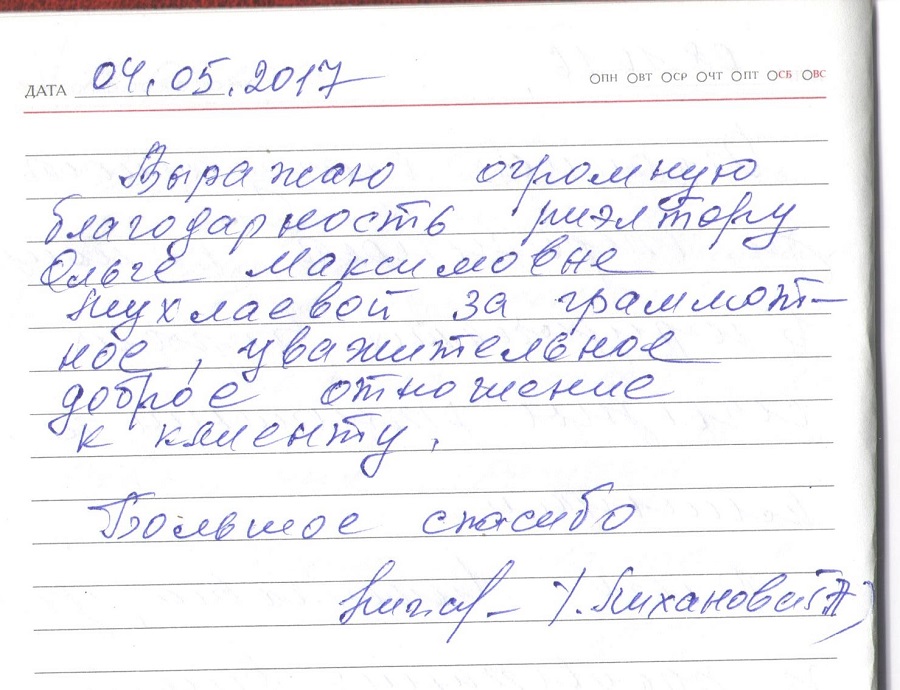 ДАТА 04.05.2017 ПН ВТ СР ЧТ ПТ СБ ВС
Выражаю огромную
благодарность риэлтору
Ольге Максимовне
за граммот-
ное, уважительное
доброе отношение
к клиенту.
Большое спасибо